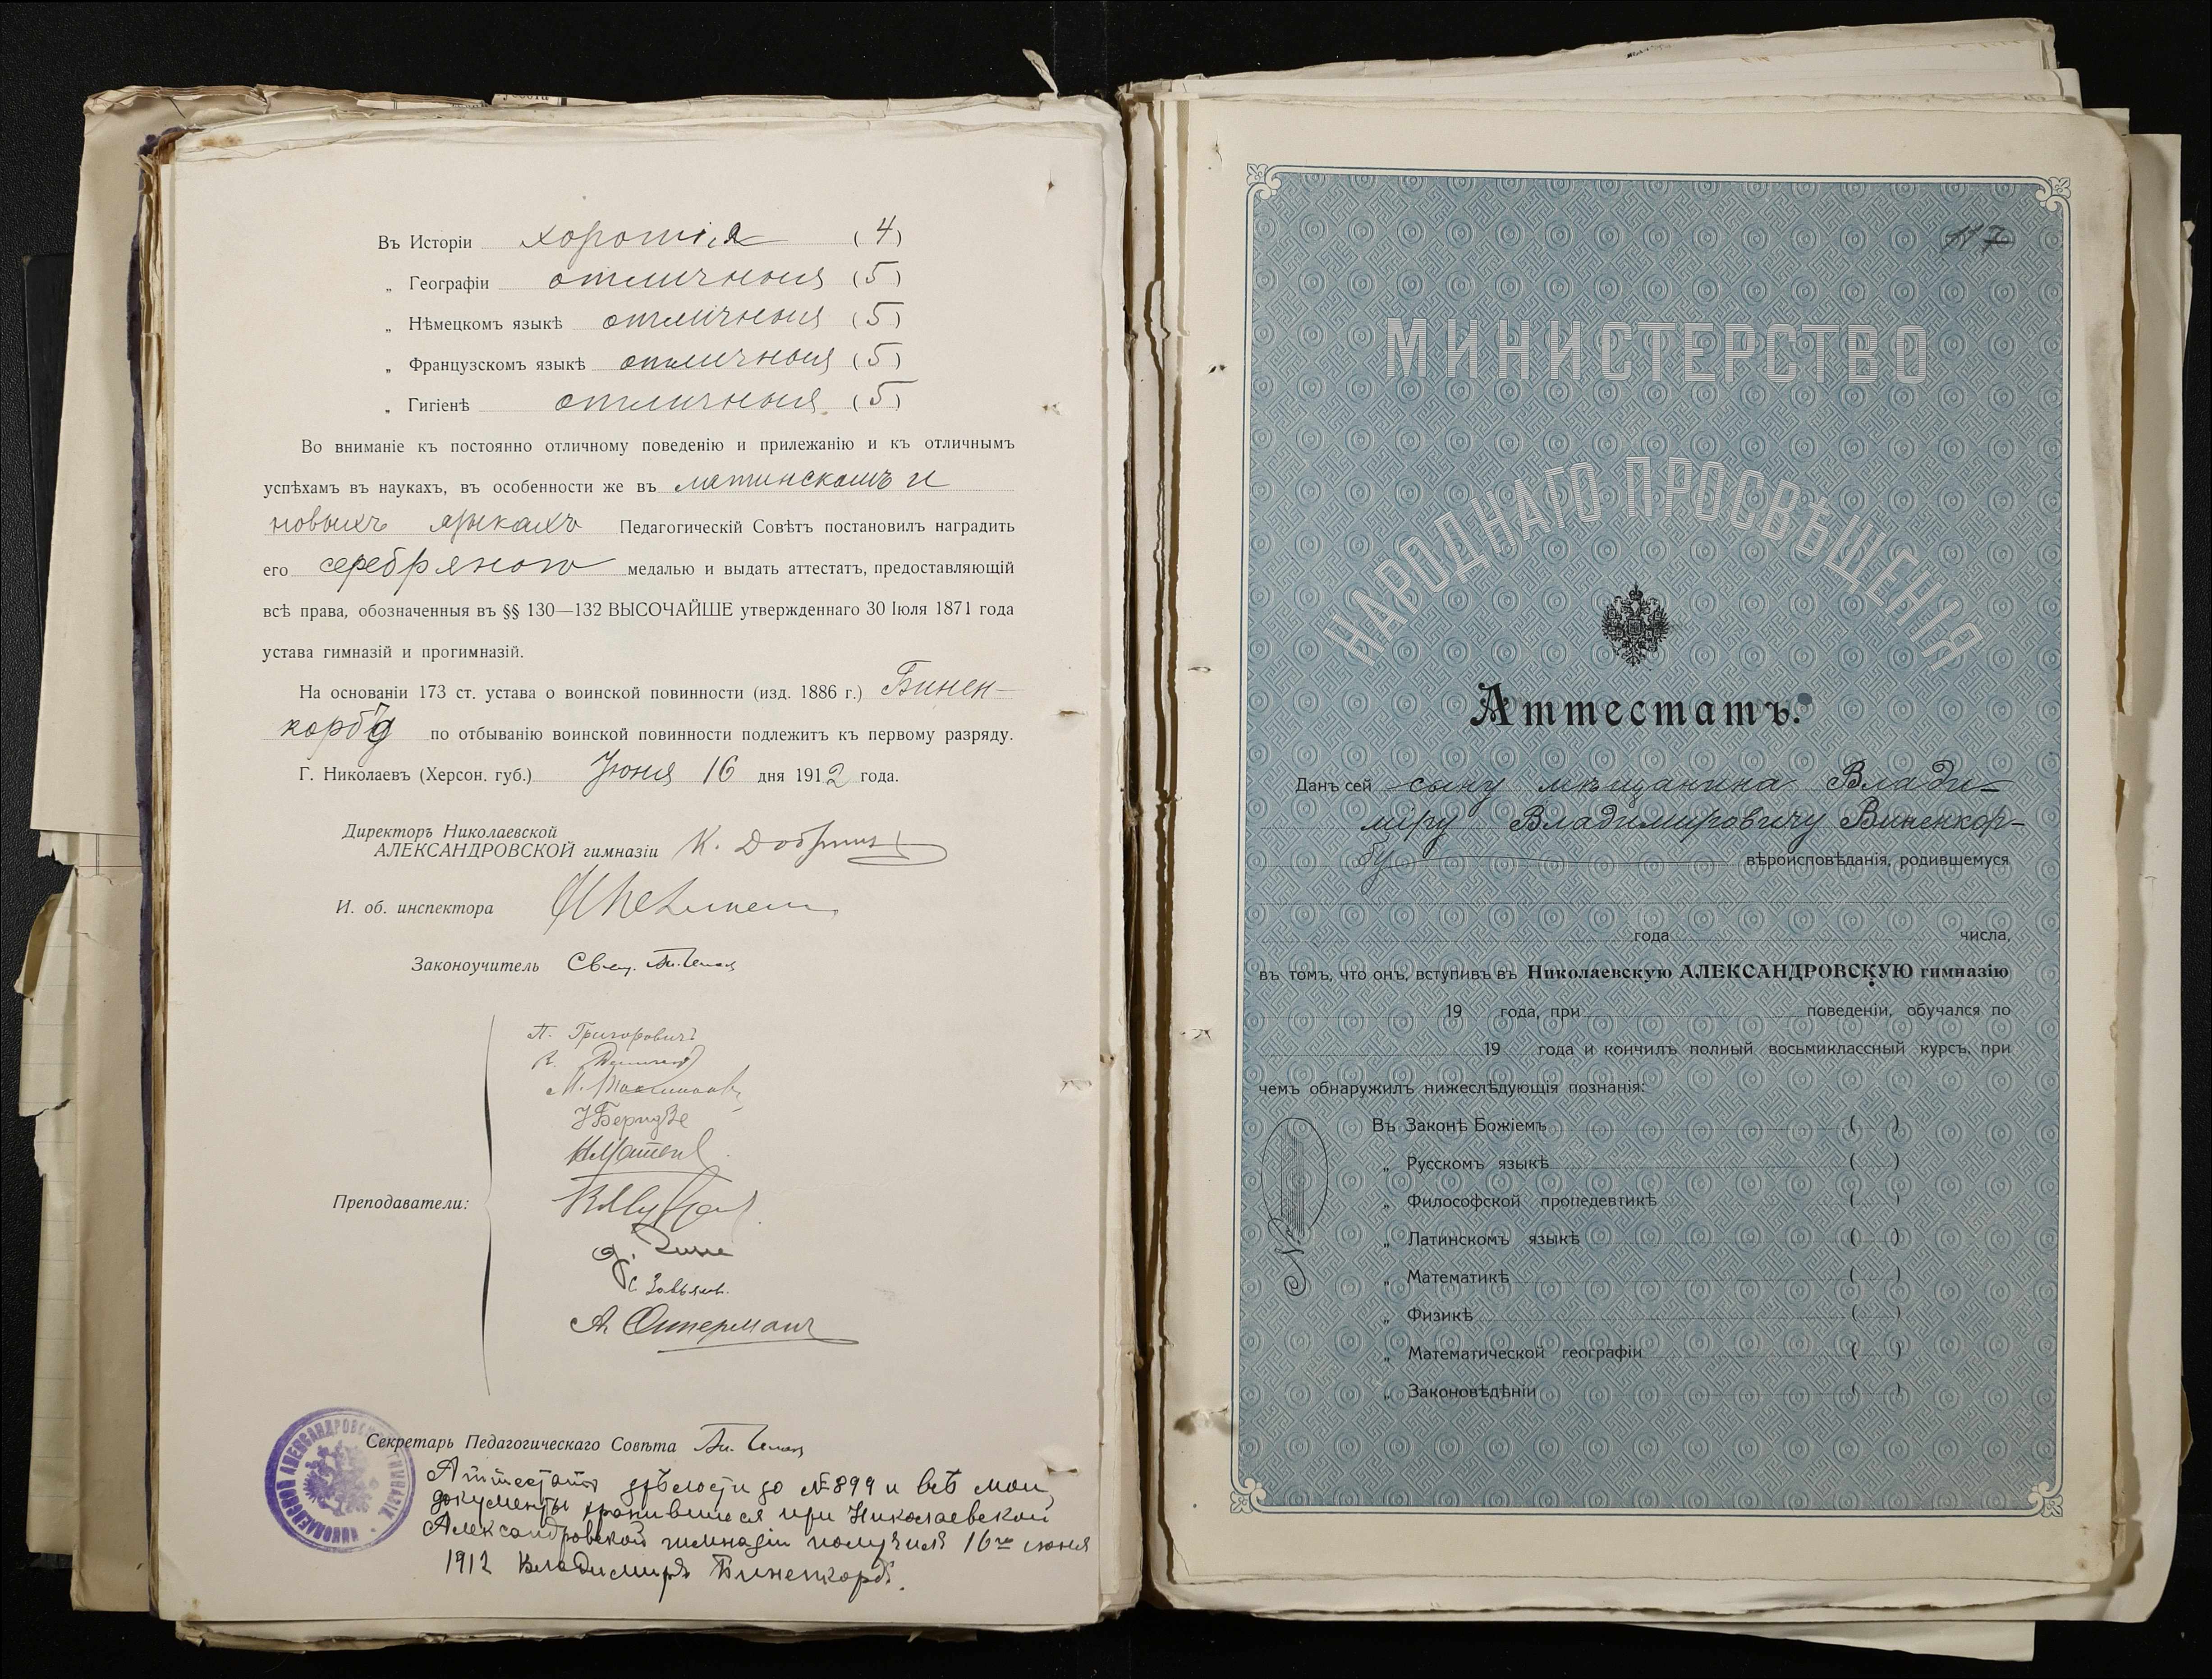 Въ Исторіи хорошія (4)
„ Географіи отличныя (5)
„ Нѣмецкомъ языкѣ отличныя (5)
„ Французскомъ языкѣ отличныя (5)
„ Гигіенѣ отличныя (5)
Во вниманіе къ постоянно отличному поведенію и прилежанію и къ отличнымъ
успѣхамъ въ наукахъ, въ особенности же въ латинскомъ и
новыхъ языкахъ Педагогическій Совѣтъ постановилъ наградить
его серебряною медалью и выдать аттестатъ, предоставляющій
всѣ права, обозначенныя въ §§ 130—132 ВЫСОЧАЙШЕ утвержденнаго 30 Іюля 1871 года
устава гимназій и прогимназій.
На основаніи 173 ст. устава о воинской повинности (изд. 1886 г.) Бинен-
корбъ по отбыванію воинской повинности подлежитъ къ первому разряду.
Г. Николаевъ (Херсон. губ.) Іюня 16 дня 1912 года.
Директоръ Николаевской
АЛЕКСАНДРОВСКОЙ гимназіи К.
И. об. инспектора
Законоучитель Свящ.
П. Григоровичъ
В.
М.
Преподаватели:
С. Завьялов.
А.
Секретарь Педагогическаго Совѣта
НИКОЛАЕВСКОЙ АЛЕКСАНДРОВСКОЙ ГИМНАЗІИ
Аттестатъ зрѣлости за №899 и всѣ мои
документы хранившиеся при Николаевской
Александровской гимназіи получилъ 16го июня
1912 Владимиръ Биненкорбъ.
7
МИНИСТЕРСТВО
НАРОДНАГО ПРОСВѢЩЕНІЯ
Аттестатъ.
Данъ сей сыну мѣщанина Влади-
міру Владимировичу Биненкор-
бу вѣроисповѣданія, родившемуся
года числа,
въ томъ, что онъ, вступивъ въ Николаевскую АЛЕКСАНДРОВСКУЮ гимназію
19 года, при поведеніи, обучался по
19 года и кончилъ полный восьмиклассный курсъ, при
чемъ обнаружилъ нижеслѣдующія познанія:
Въ Законѣ Божіемъ ( )
„ Русскомъ языкѣ ( )
„ Философской пропедевтикѣ ( )
„ Латинскомъ языкѣ ( )
„ Математикѣ ( )
„ Физикѣ ( )
„ Математической географіи ( )
„ Законовѣдѣніи ( )
№